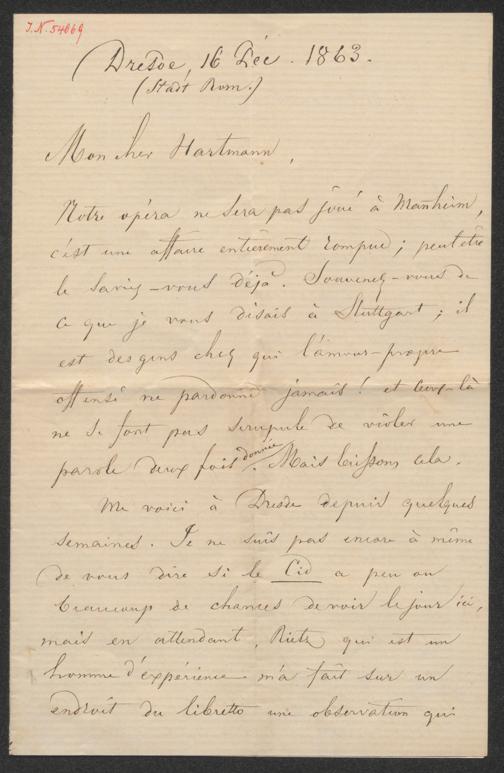 J.N. 54869
Dresde, 16 Déc. 1863.
(Stadt Rom.)
Mon cher Hartmann,
Notre opéra ne sera pas joué à Manheim,
c'est une affaire entièrement rompue; peut être
le saviez-vous déjà. Souvenez-vous de
ce que je vous disais à Stuttgart; il
est des gens chez qui l'amour-propre
offensé ne pardonne jamais! et ceux-là
ne se font pas scrupule de violer une
parole deux fois donnée. Mais laissons cela.
Me voici à Dresde depuis quelques
semaines. Je ne suis pas encore à même
de vous dire si le Cid a peu ou
beaucoup de chances de voir le jour ici,
mais en attendant, Rietz qui est un
homme d'expérience m'a fait sur un
endroit du libretto une observation qui